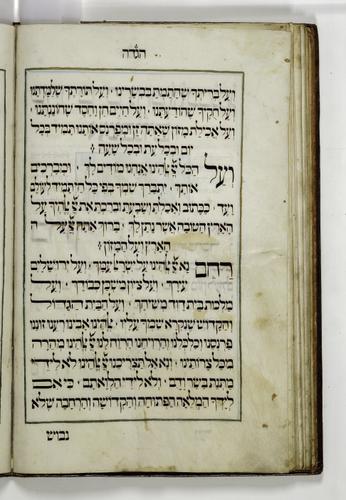 הגדה
ועל בריתך שחתמת בבשרנו ׳ ועל תורתך שלמדתנו
ועל חקיך שהודעתנו ׳ ועל חיים חן וחסד שחוננתנו ׳
ועל אכילת מזון שאתה זן ומפרנס אותנו תמיד בכל
יום ובכל עת ובכל שעה :
ועל הכל אנחנו מודים לך ׳ ומברכים
אותך ׳ יתברך שמך בפי כל חי תמיד לעולם
ועד ׳ ככתוב ואכלת ושבעת וברכת את על
הארץ הטובה אשר נתן לך ׳ ברוך אתה על
הארץ ועל המזון :
רחם נא על ישראל עמך ׳ ועל ירושלים
עירך ׳ ועל ציון משכן כבודך ׳ ועל
מלכות בית דוד משיחך ׳ ועל הבית הגדול
והקדוש שנקרא שמך עליו ׳ אבינו רענו זוננו
פרנסנו וכלכלנו והרויחנו והרוח לנו מהרה
מכל צרותינו ׳ ונא אל תצריכנו לא לידי
מתנת בשר ודם ׳ ולא לידי הלואתם ׳ כי אם
לידך המלאה הפתוחה הקדושה והרחבה שלא
נבוש